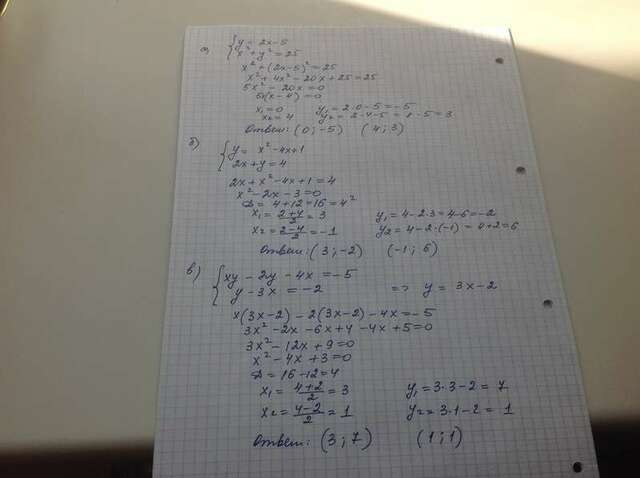 а) { y = 2x-5
x² + y² = 25
x² + (2x-5)² = 25
x² + 4x² - 20x + 25 = 25
5x² - 20x = 0
5x(x-4) = 0
x₁ = 0 y₁ = 2·0-5 = -5
x₂ = 4 y₂ = 2·4-5 = 8-5 = 3
Ответ: (0; -5) (4; 3)
б) { y = x² - 4x + 1
2x + y = 4
2x + x² - 4x + 1 = 4
x² - 2x - 3 = 0
D = 4 + 12 = 16 = 4²
x₁ = (2+4)/2 = 3 y₁ = 4-2·3 = 4-6 = -2
x₂ = (2-4)/2 = -1 y₂ = 4-2·(-1) = 4+2 = 6
Ответ: (3; -2) (-1; 6)
в) { xy - 2y - 4x = -5
y - 3x = -2 => y = 3x-2
x(3x-2) - 2(3x-2) - 4x = -5
3x² - 2x - 6x + 4 - 4x + 5 = 0
3x² - 12x + 9 = 0
x² - 4x + 3 = 0
D = 16-12 = 4
x₁ = (4+2)/2 = 3 y₁ = 3·3-2 = 7
x₂ = (4-2)/2 = 1 y₂ = 3·1-2 = 1
Ответ: (3; 7) (1; 1)